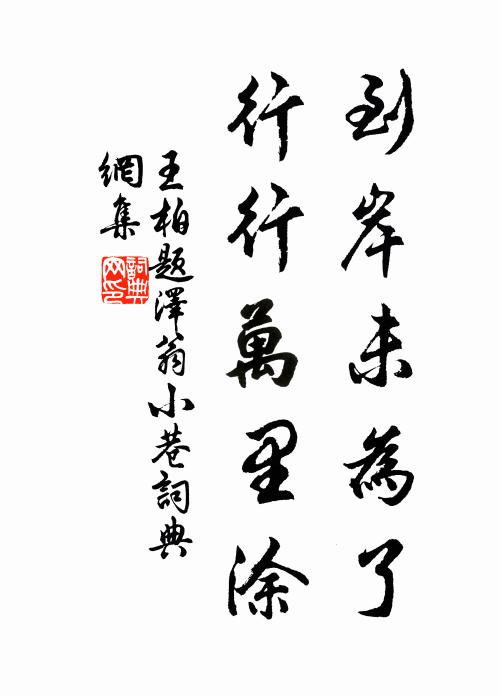 到岸未為了
行行萬里涂
王柏題澤翁小巷詞典
網集
詞典
网印